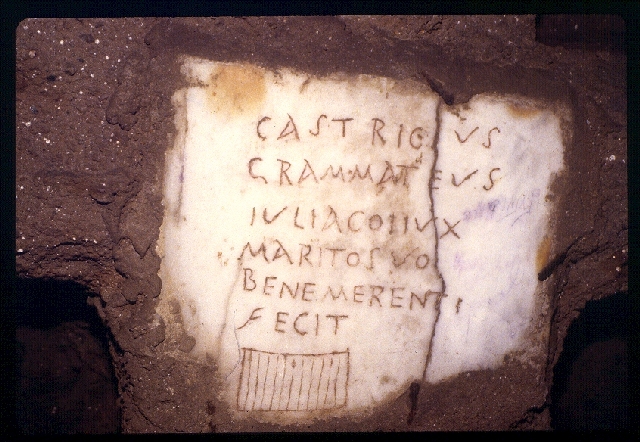 CASTRICIVS
GRAMMATEVS
IVLIACOIIVX
MARITOSVO
BENEMERENTI
FECIT